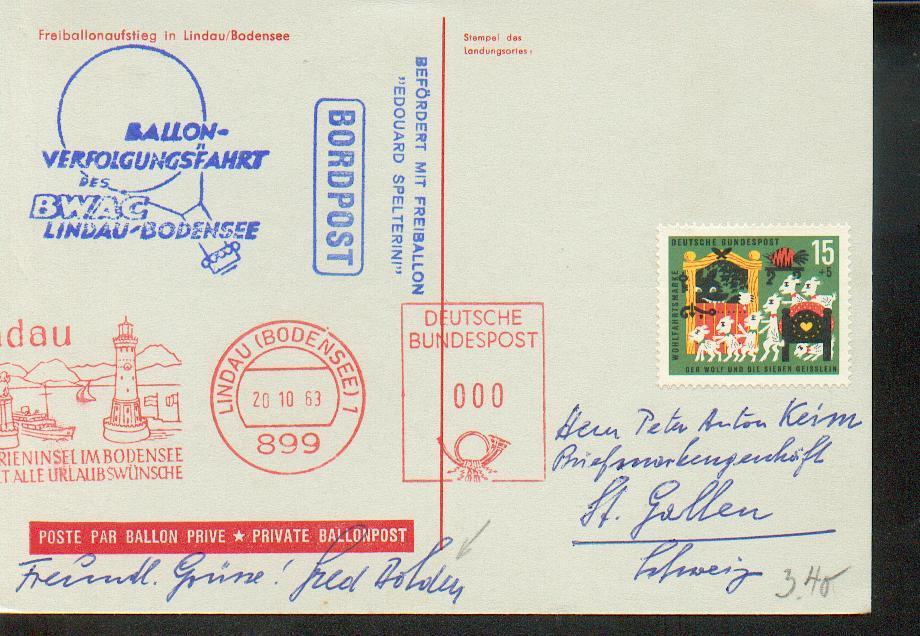 Freiballonaufstieg in Lindau/Bodensee
Stempel des
Landungsortes:
BALLON-
VERFOLGUNGSFAHRT
DES
BWAC
LINDAU-BODENSEE
BORDPOST
BEFÖRDERT MIT FREIBALLON
"EDOUARD SPELTERINI"
DEUTSCHE BUNDESPOST
15
+5
WOHLFAHRTSMARKE
DER WOLF UND DIE SIEBEN GEISSLEIN
ndau
RIENINSEL IM BODENSEE
T ALLE URLAUBSWÜNSCHE
LINDAU (BODENSEE) 1
20 10 63
899
DEUTSCHE
BUNDESPOST
000
Herrn Peter Anton Keim
Briefmarkengeschäft
St. Gallen
Schweiz
3.40
POSTE PAR BALLON PRIVE ★ PRIVATE BALLONPOST
Freundl. Grüsse! Fred Dolder